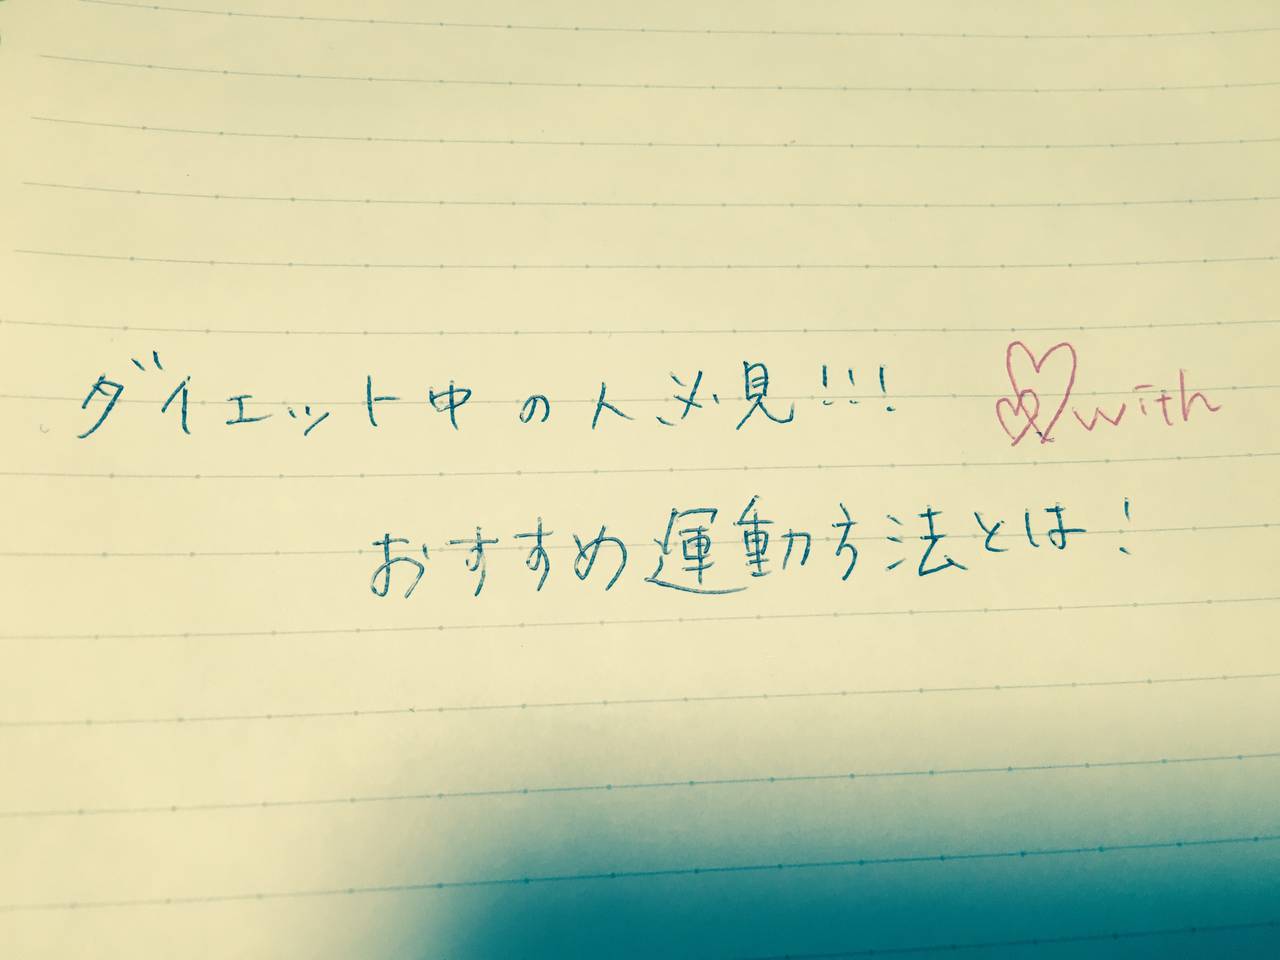 ダイエット中の人必見!!! with
おすすめ運動方法とは!